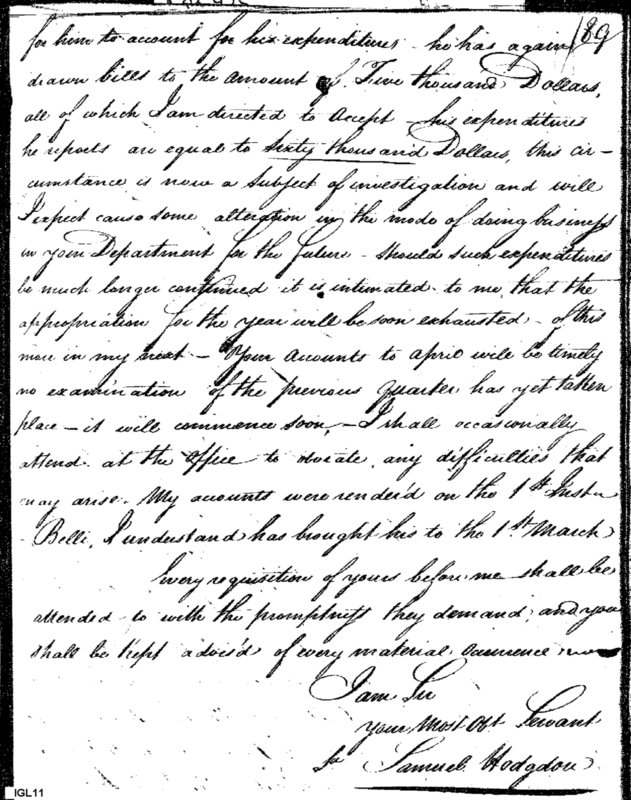 189
for him to account for his expenditures - he has again
drawn bills to the amount of Five thousand Dollars,
all of which I am directed to accept - his expenditures
he reports are equal to sixty thousand Dollars, this cir-
cumstance is now a subject of investigation and will
I expect cause some alteration in the mode of doing business
in your Department for the future - should such expenditures
be much longer continued it is intimated to me, that the
appropriation for the year will be soon exhausted - of this
more in my next - Your accounts to april will be timely
no examination of the previous quarter has yet taken
place - it will commence soon, - I shall occasionally
attend at the office to obviate any difficulties that
may arise. My accounts were render'd on the 1st Inst
Belli, I understand has brought his to the 1st March
Every requisition of yours before me shall be
attended to with the promptness they demand, and you
shall be kept advis'd of every material occurrence
I am Sir
your Most Obt Servant
Samuel Hodgdon
IGL11